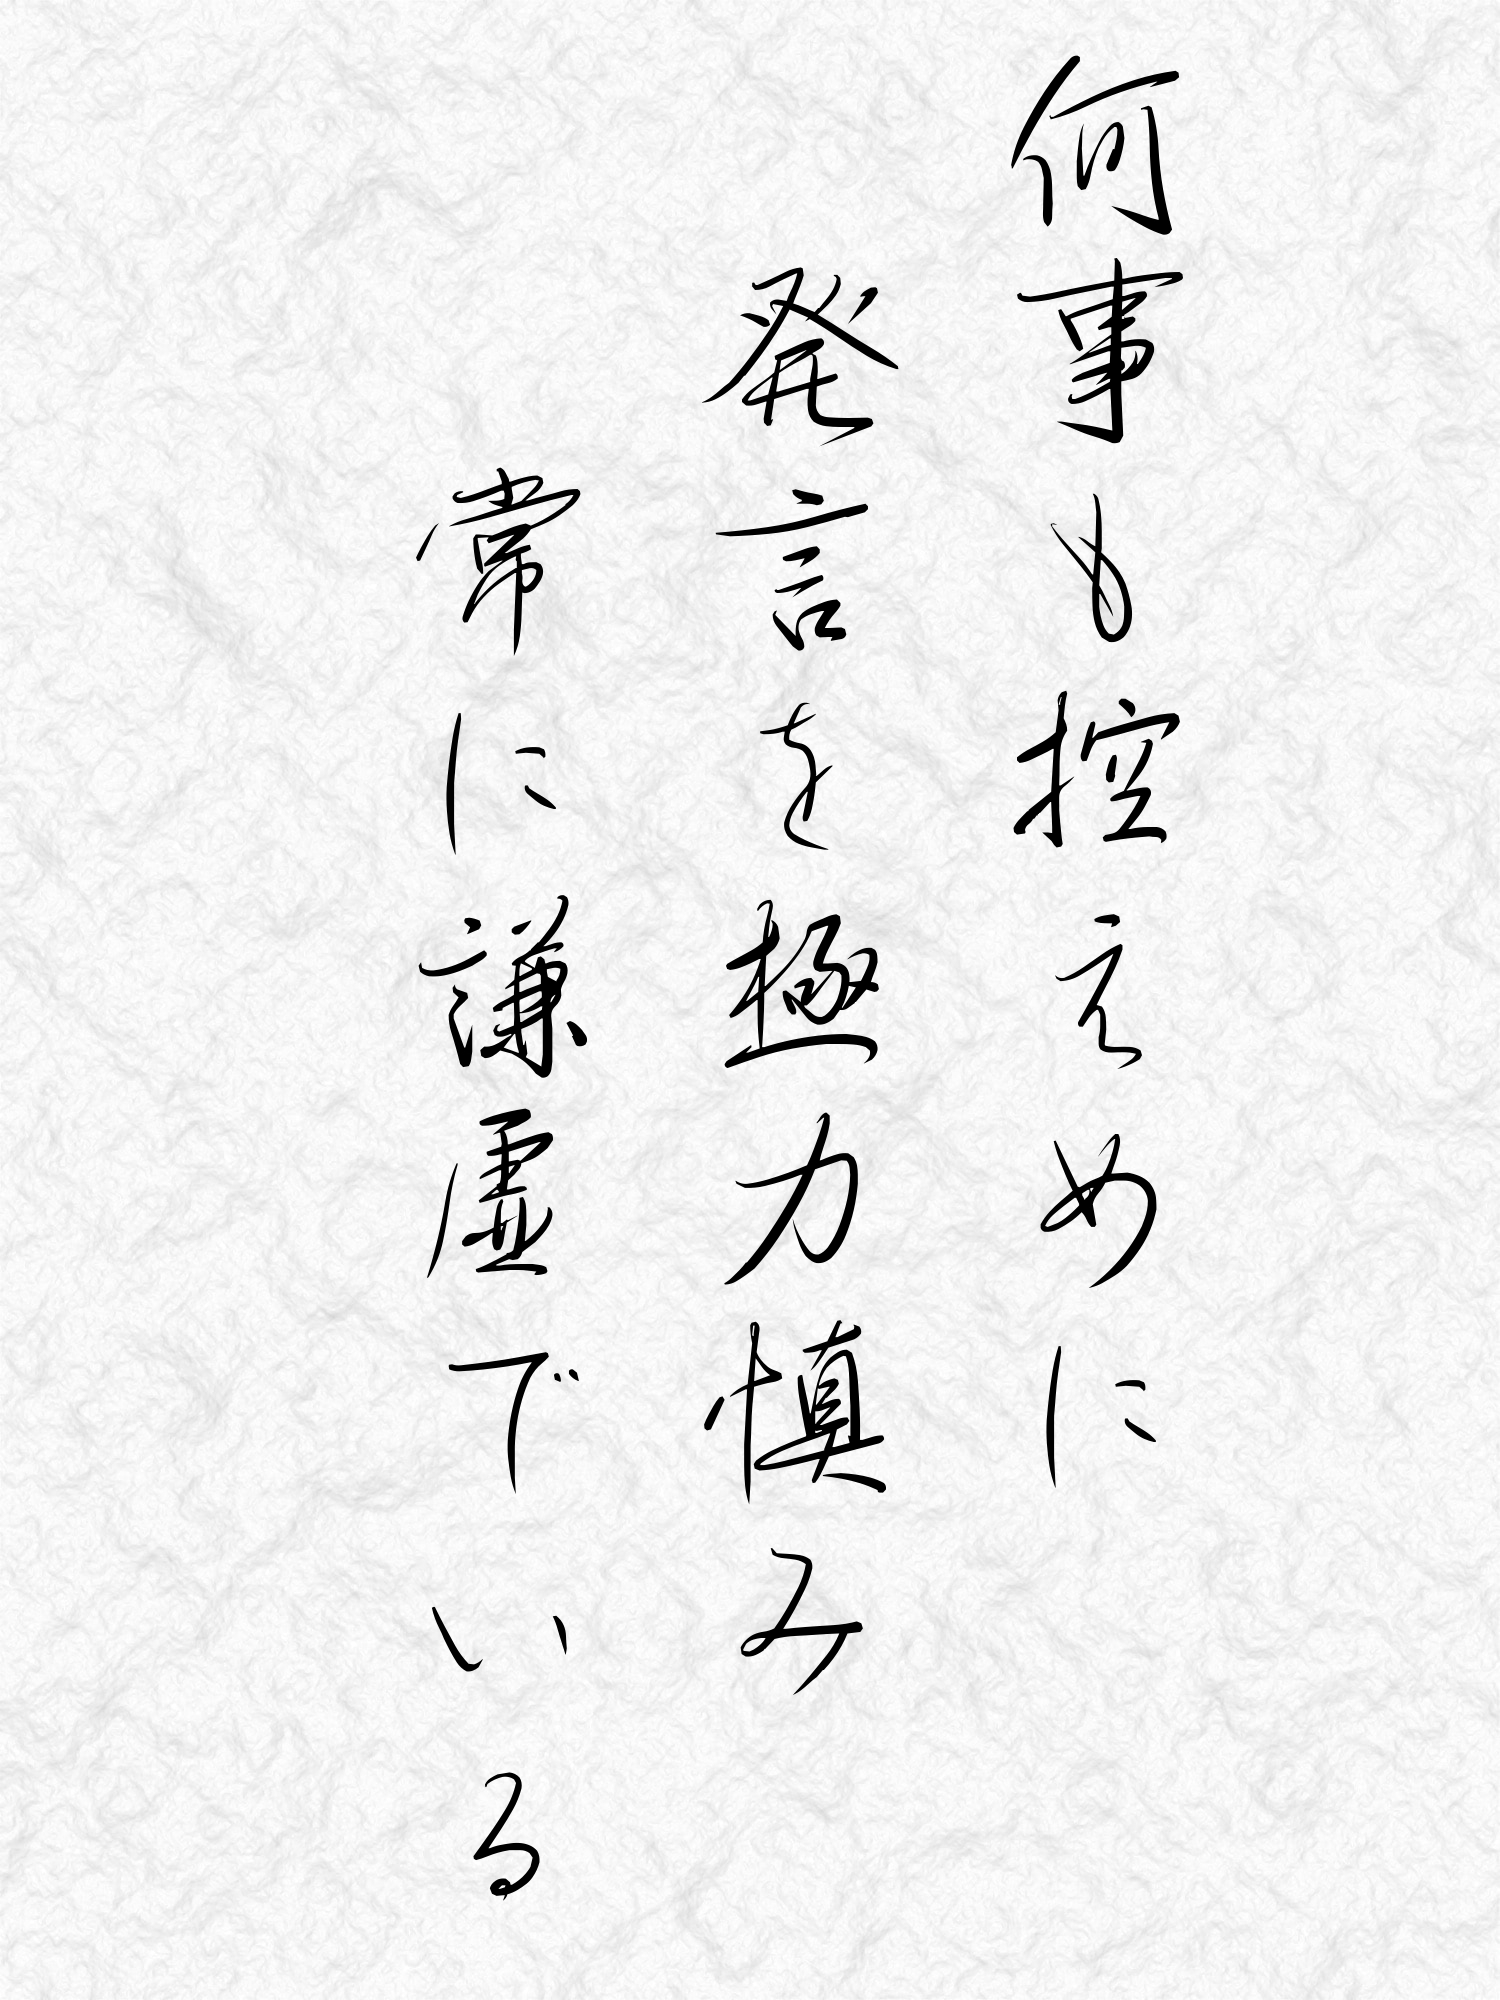 何事も控えめに
発言を極力慎み
常に謙虚でいる